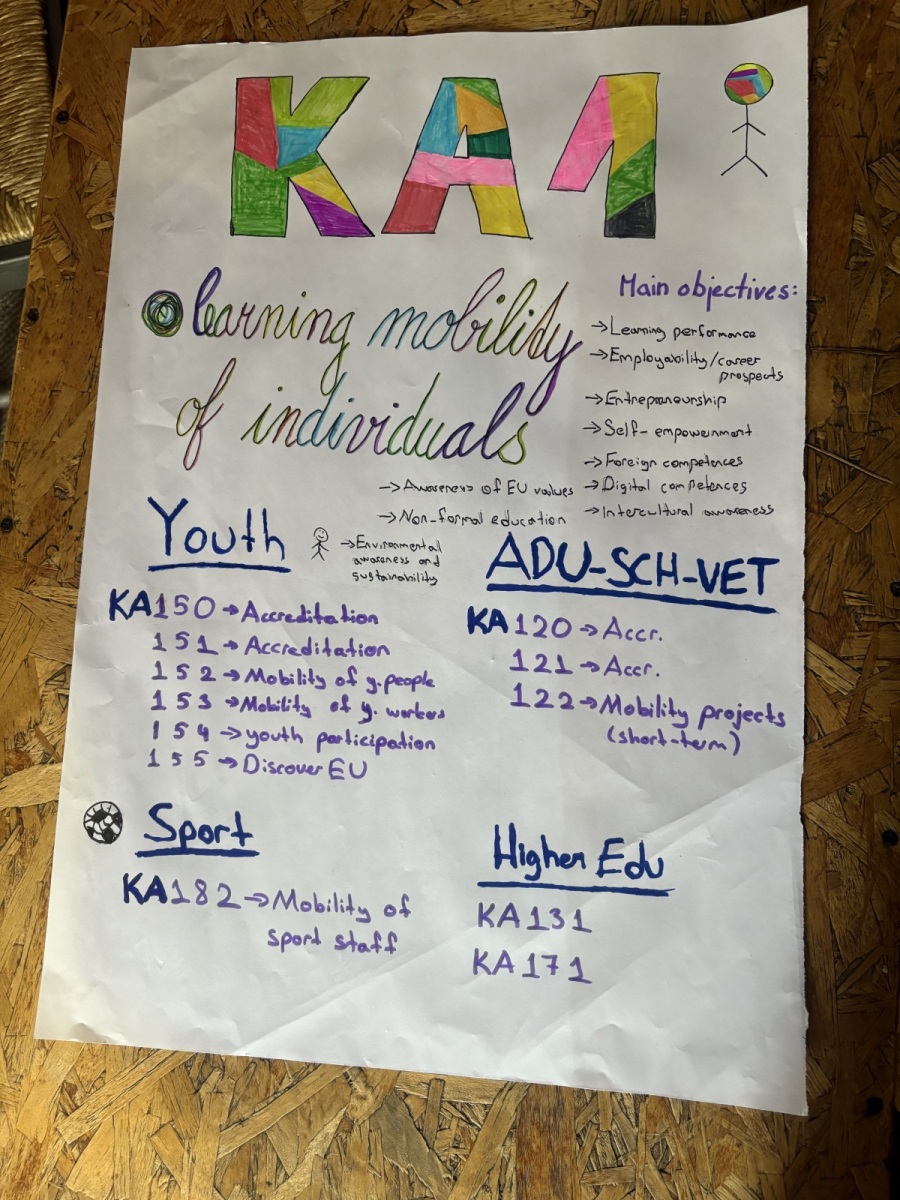 KA1
learning mobility
of individuals
Main objectives:
→Learning performance
→Employability/career
prospects
→Entrepreneurship
→Self-empowernment
→Foreign competences
→Digital competences
→Intercultural awareness
→Awareness of EU values
→Non-formal education
→Environmental
awareness and
sustainability
Youth
KA150→Accreditation
151→Accreditation
152→Mobility of y.people
153→Mobility of y. workers
154→youth participation
155→Discover EU
ADU-SCH-VET
KA120→Accr.
121→Accr.
122→Mobility projects
(short-term)
Sport
KA182→Mobility of
sport staff
Higher Edu
KA131
KA171